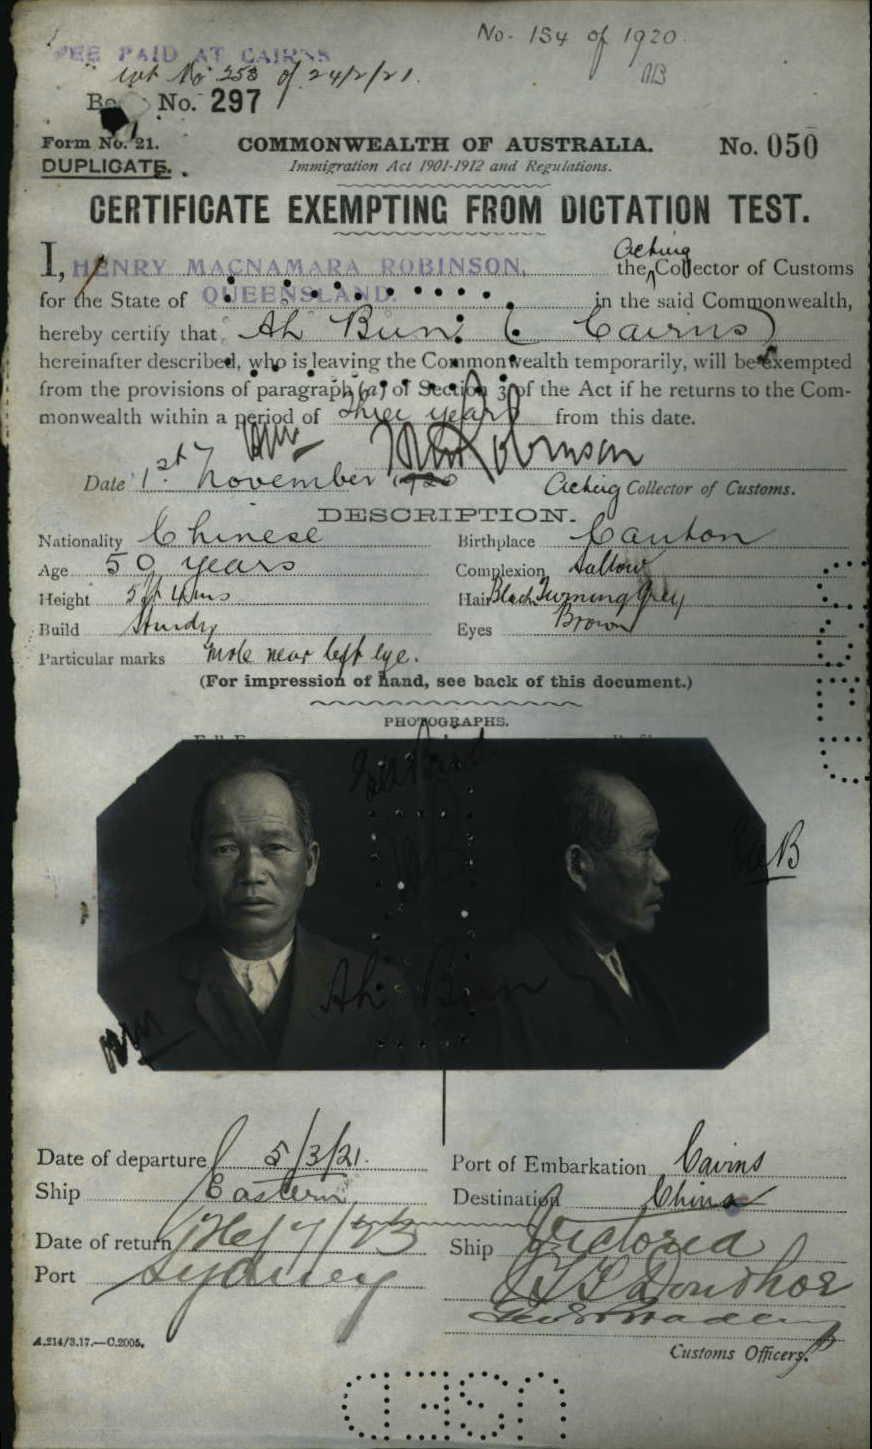 No. 134 of 1920
FEE PAID AT CAIRNS
No 253 of 24/2/21.
No. 297
Form No. 21.
COMMONWEALTH OF AUSTRALIA.
No. 050
DUPLICATE.
Immigration Act 1901-1912 and Regulations.
CERTIFICATE EXEMPTING FROM DICTATION TEST.
I, HENRY MACNAMARA ROBINSON, the Acting Collector of Customs
for the State of QUEENSLAND. in the said Commonwealth,
hereby certify that Ah Bun (Cairns)
hereinafter described, who is leaving the Commonwealth temporarily, will be exempted
from the provisions of paragraph (a) of Section 3 of the Act if he returns to the Com-
monwealth within a period of Three years from this date.
Robinson
Date 1st November 1920
Acting Collector of Customs.
DESCRIPTION.
Nationality Chinese
Birthplace Canton
Age 50 years
Complexion Sallow
Height 5ft 4ins
Hair Black Turning Grey
Build Sturdy
Eyes Brown
Particular marks Mole near left eye.
(For impression of hand, see back of this document.)
PHOTOGRAPHS.
Ah Bun
Date of departure 5/3/21.
Port of Embarkation Cairns
Ship Eastern
Destination China
Date of return
Ship Victoria
Port Sydney
A.214/3.17.—C.2005.
Customs Officers.